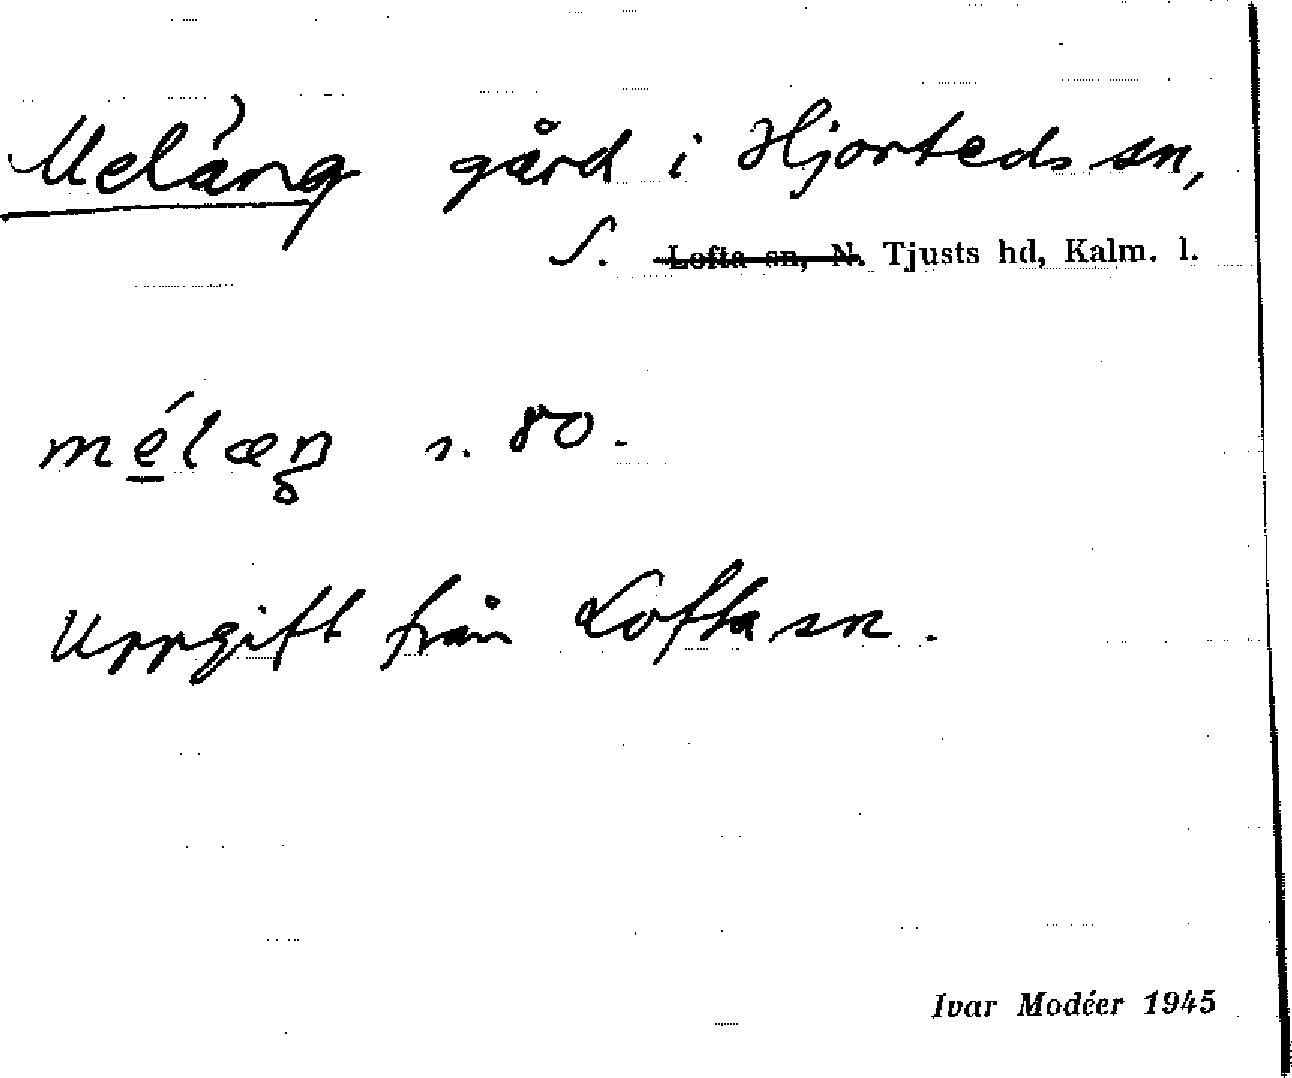 Meláng gård i Hjorteds sn,
S. ~~Lofta sn, N.~~ Tjusts hd, Kalm. l.
mélæŋ s. 80.
Uppgift från Lofta sn.
Ivar Modéer 1945